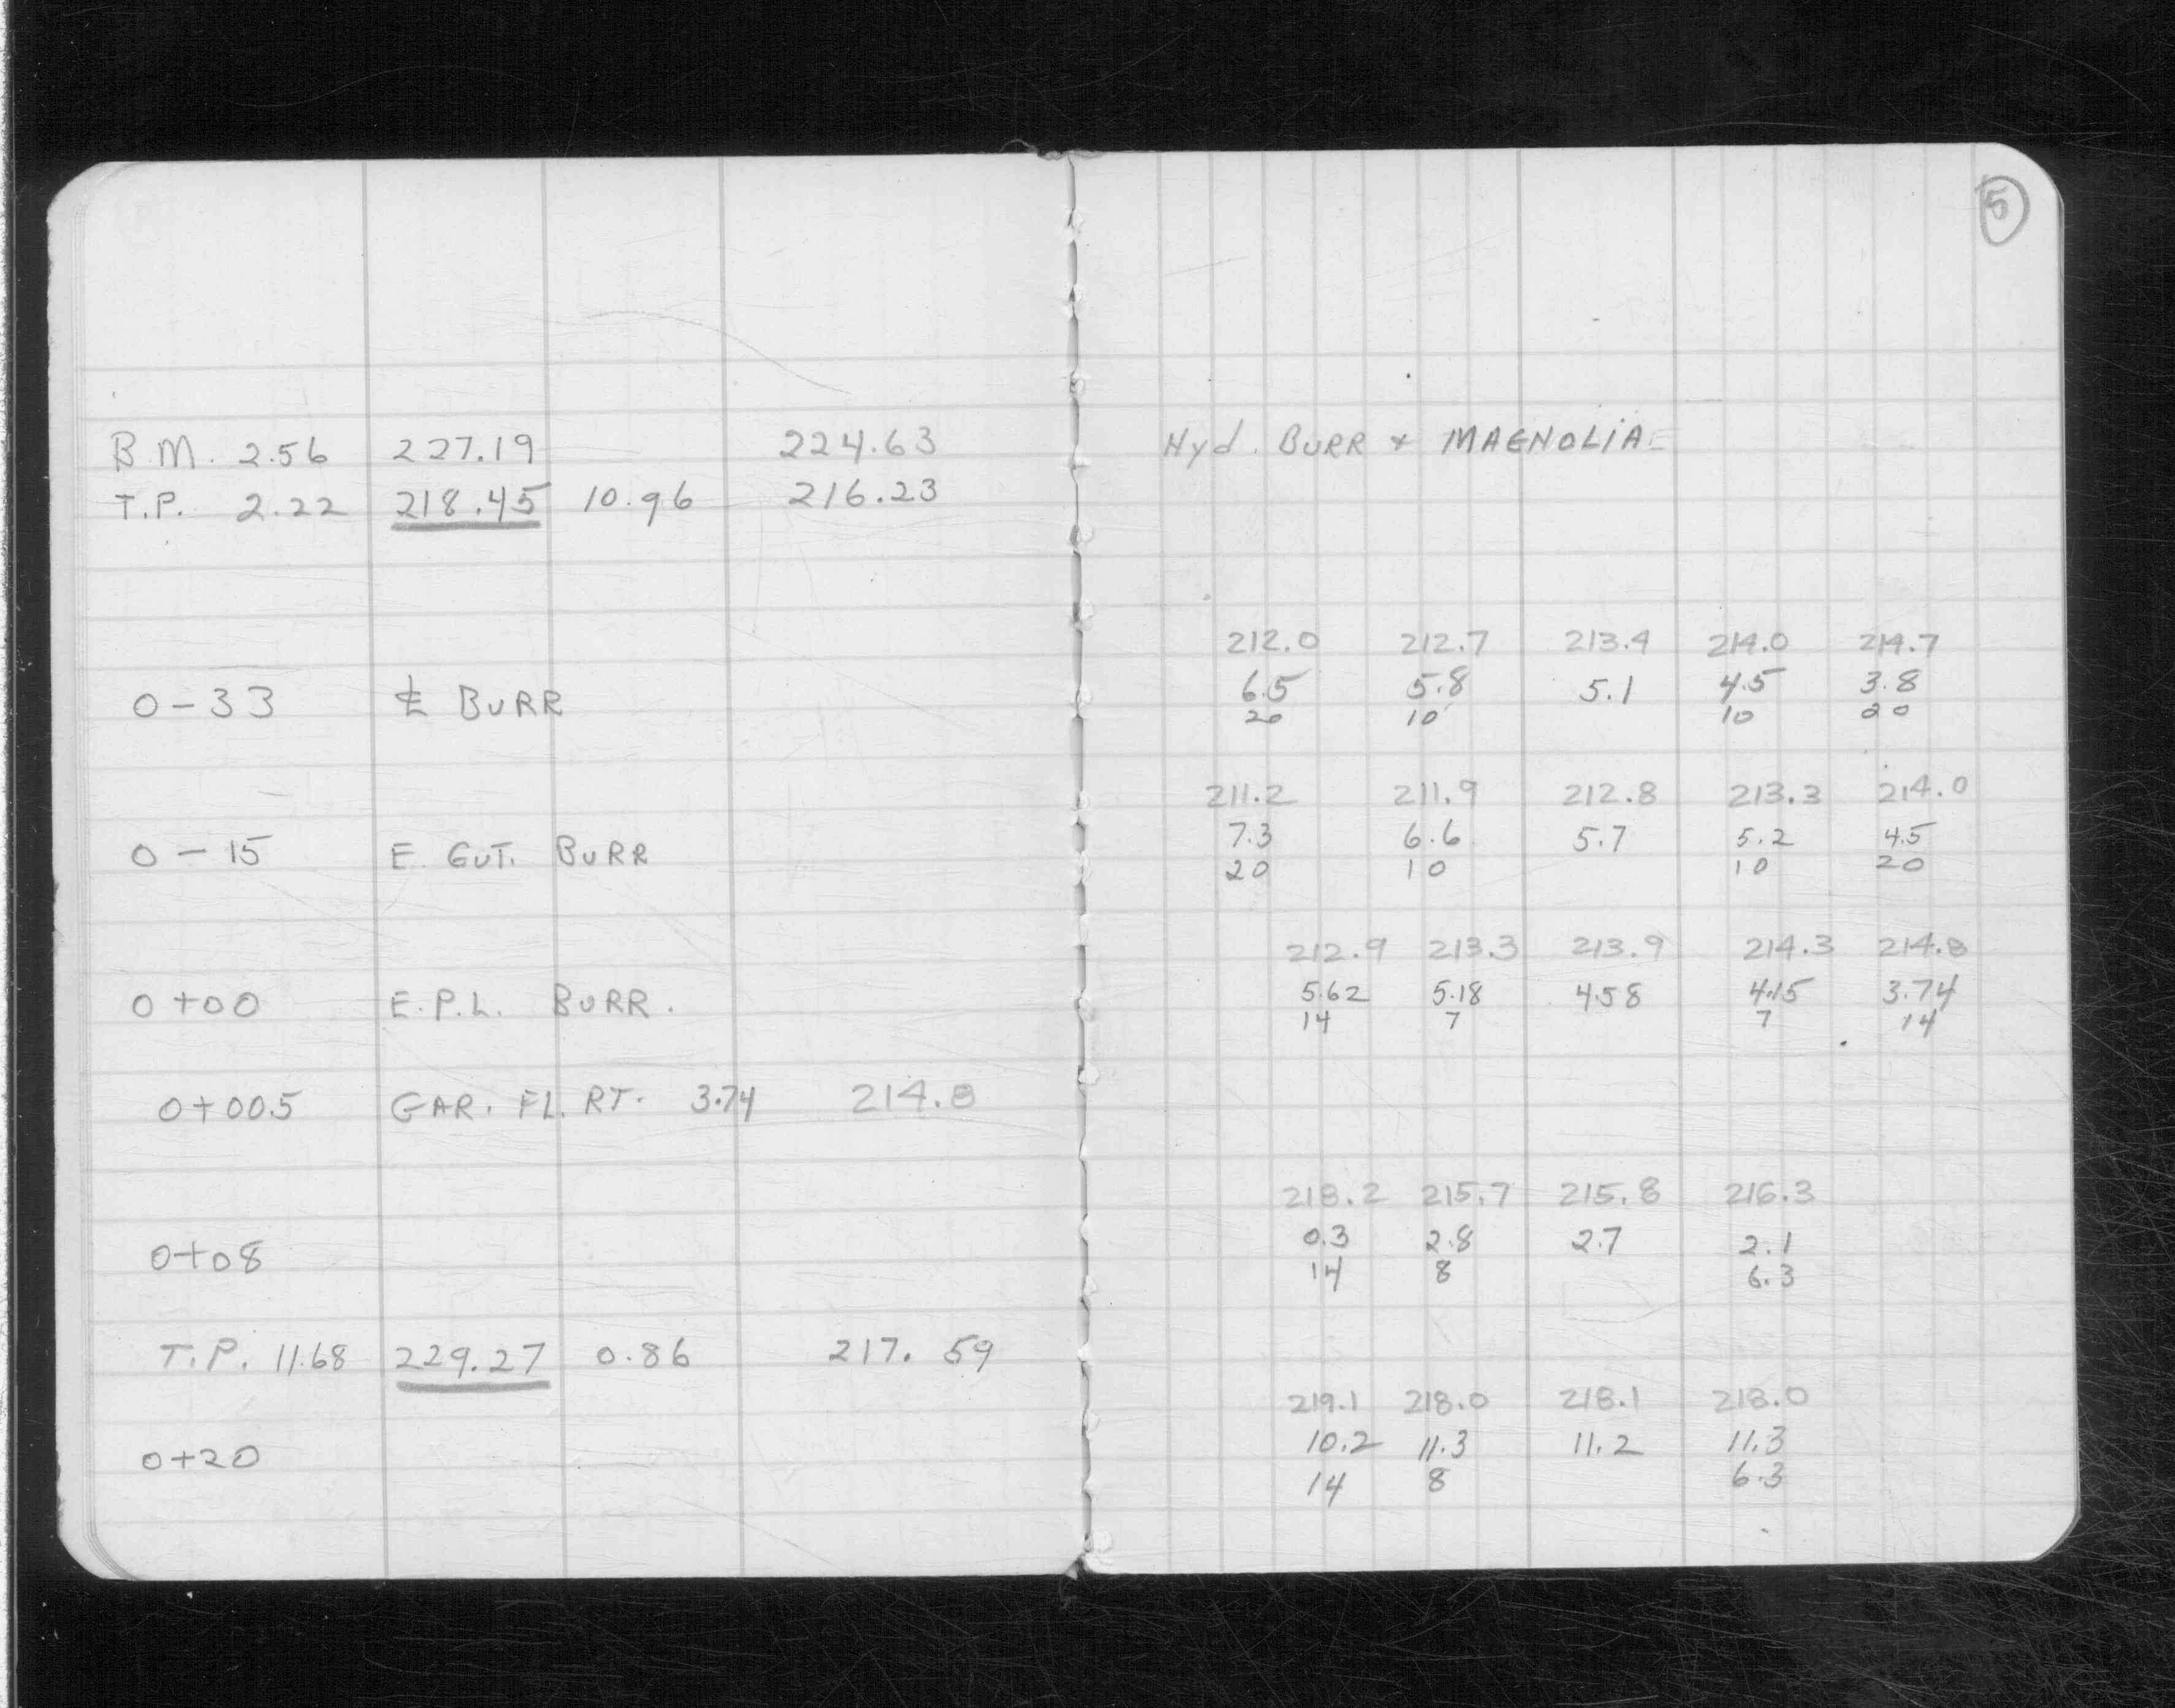 5
B.M. 2.56 227.19 224.63 Hyd. BURR & MAGNOLIA
T.P. 2.22 218.45 10.96 216.23
212.0 212.7 213.4 214.0 214.7
0-33 ℄ BURR 6.5 5.8 5.1 4.5 3.8
20 10 10 20
211.2 211.9 212.8 213.3 214.0
0-15 E. GUT. BURR 7.3 6.6 5.7 5.2 4.5
20 10 10 20
212.9 213.3 213.9 214.3 214.8
0+00 E.P.L. BURR. 5.62 5.18 4.58 4.15 3.74
14 7 7 14
0+00.5 GAR. FL. RT. 3.74 214.8
218.2 215.7 215.8 216.3
0+08 0.3 2.8 2.7 2.1
14 8 6.3
T.P. 11.68 229.27 0.86 217.59
219.1 218.0 218.1 218.0
0+20 10.2 11.3 11.2 11.3
14 8 6.3